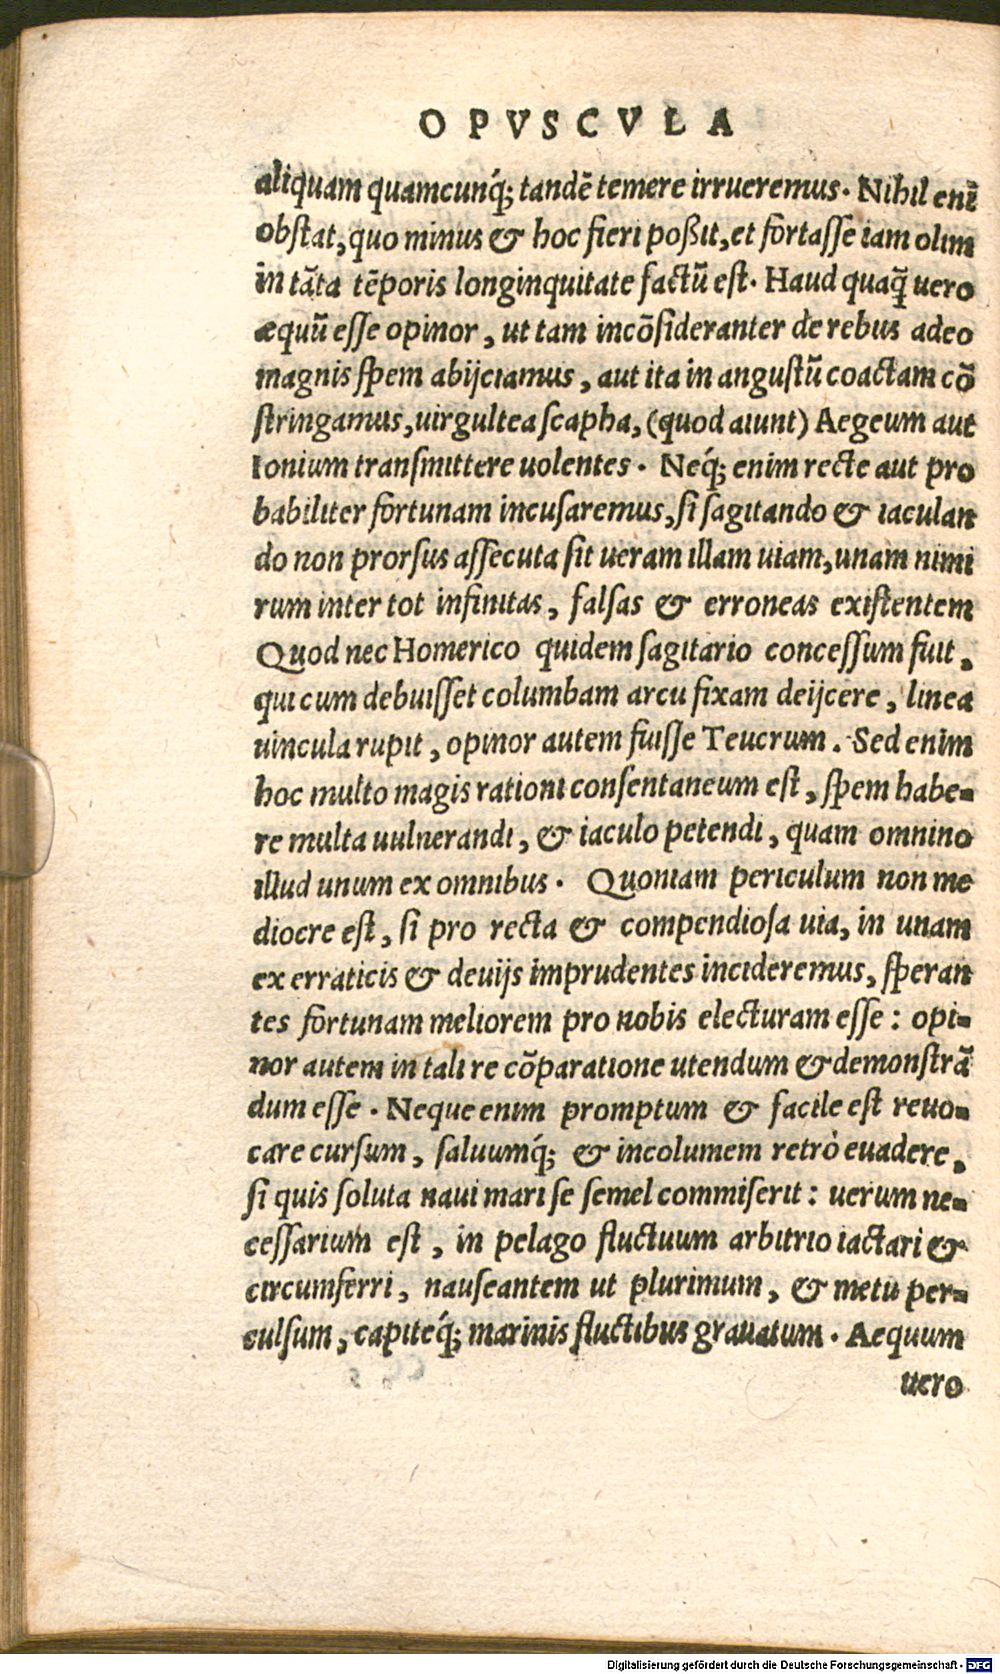 OPVSCVLA
aliquam quamcunq́; tandē temere irrueremus. Nihil enĩ
obstat, quo minus & hoc fieri poßit, et fortasse iam olim
in tãta tēporis longinquitate factũ est. Haud quaq̃ uero
æquũ esse opinor, ut tam incõsideranter de rebus adeo
magnis spem abijciamus, aut ita in angustũ coactam cõ
stringamus, uirgultea scapha, (quod aiunt) Aegeum aut
Ionium transmittere uolentes. Neq́; enim recte aut pro
babiliter fortunam incusaremus, si sagitando & iaculan
do non prorsus assecuta sit ueram illam uiam, unam nimi
rum inter tot infinitas, falsas & erroneas existentem
Quod nec Homerico quidem sagitario concessum fuit,
qui cum debuisset columbam arcu fixam deijcere, linea
uincula rupit, opinor autem fuisse Teucrum. Sed enim
hoc multo magis rationi consentaneum est, spem habe-
re multa uulnerandi, & iaculo petendi, quam omnino
illud unum ex omnibus. Quoniam periculum non me
diocre est, si pro recta & compendiosa uia, in unam
ex erraticis & deuijs imprudentes incideremus, speran
tes fortunam meliorem pro nobis electuram esse: opi-
nor autem in tali re cõparatione utendum & demonstrã
dum esse. Neque enim promptum & facile est reuo-
care cursum, saluumq́; & incolumem retrò euadere,
si quis soluta naui mari se semel commiserit: uerum ne-
cessarium est, in pelago fluctuum arbitrio iactari &
circumferri, nauseantem ut plurimum, & metu per-
culsum, capiteq́; marinis fluctibus grauatum. Aequum
uero
Digitalisierung gefördert durch die Deutsche Forschungsgemeinschaft - DFG